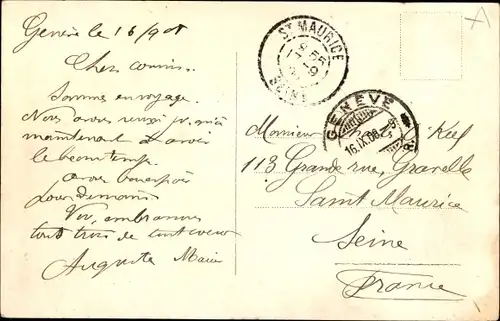 Genève le 16/9 08
Cher cousin.
Sommes en voyage.
Nous avons
maintenant
le beau temps.
avons
pour demain
Vos, embrassons
tout trois de tout coeur
Auguste Marie
ST MAURICE
8 55
17 -9
SEINE
GENÈVE
16.IX.08
Monsieur Kief
113 Grande rue, Gravelle
Saint Maurice
Seine
France